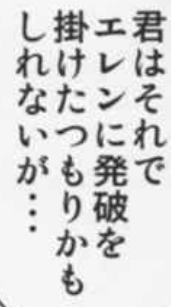 君はそれで
エレンに発破を
掛けたつもりかも
しれないが…